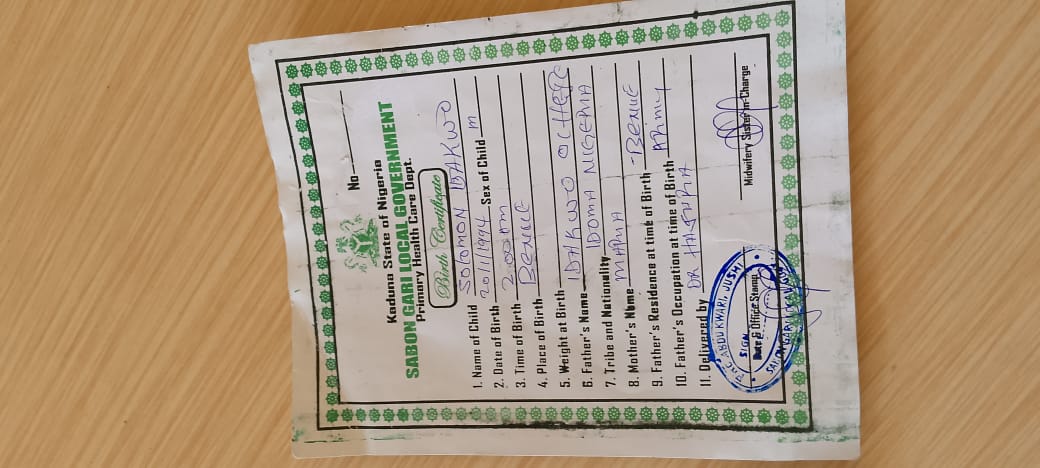 No
Kaduna State of Nigeria
SABON GARI LOCAL GOVERNMENT
Primary Health Care Dept.
Birth Certificate
1. Name of Child SOLOMON DAKWO
2. Date of Birth 2011/1994 Sex of Child m
3. Time of Birth 2.00am
4. Place of Birth BENUE
5. Weight at Birth
6. Father's Name DAKWO OCHEFE
7. Tribe and Nationality IDOMA NIGERIA
8. Mother's Name MARIA
9. Father's Residence at time of Birth BENUE
10. Father's Occupation at time of Birth Army
11. Delivered by DR
Midwifery Sister in-Charge
PHC ABDU KWARI, JUSHI
SIGN
Date & Office Stamp